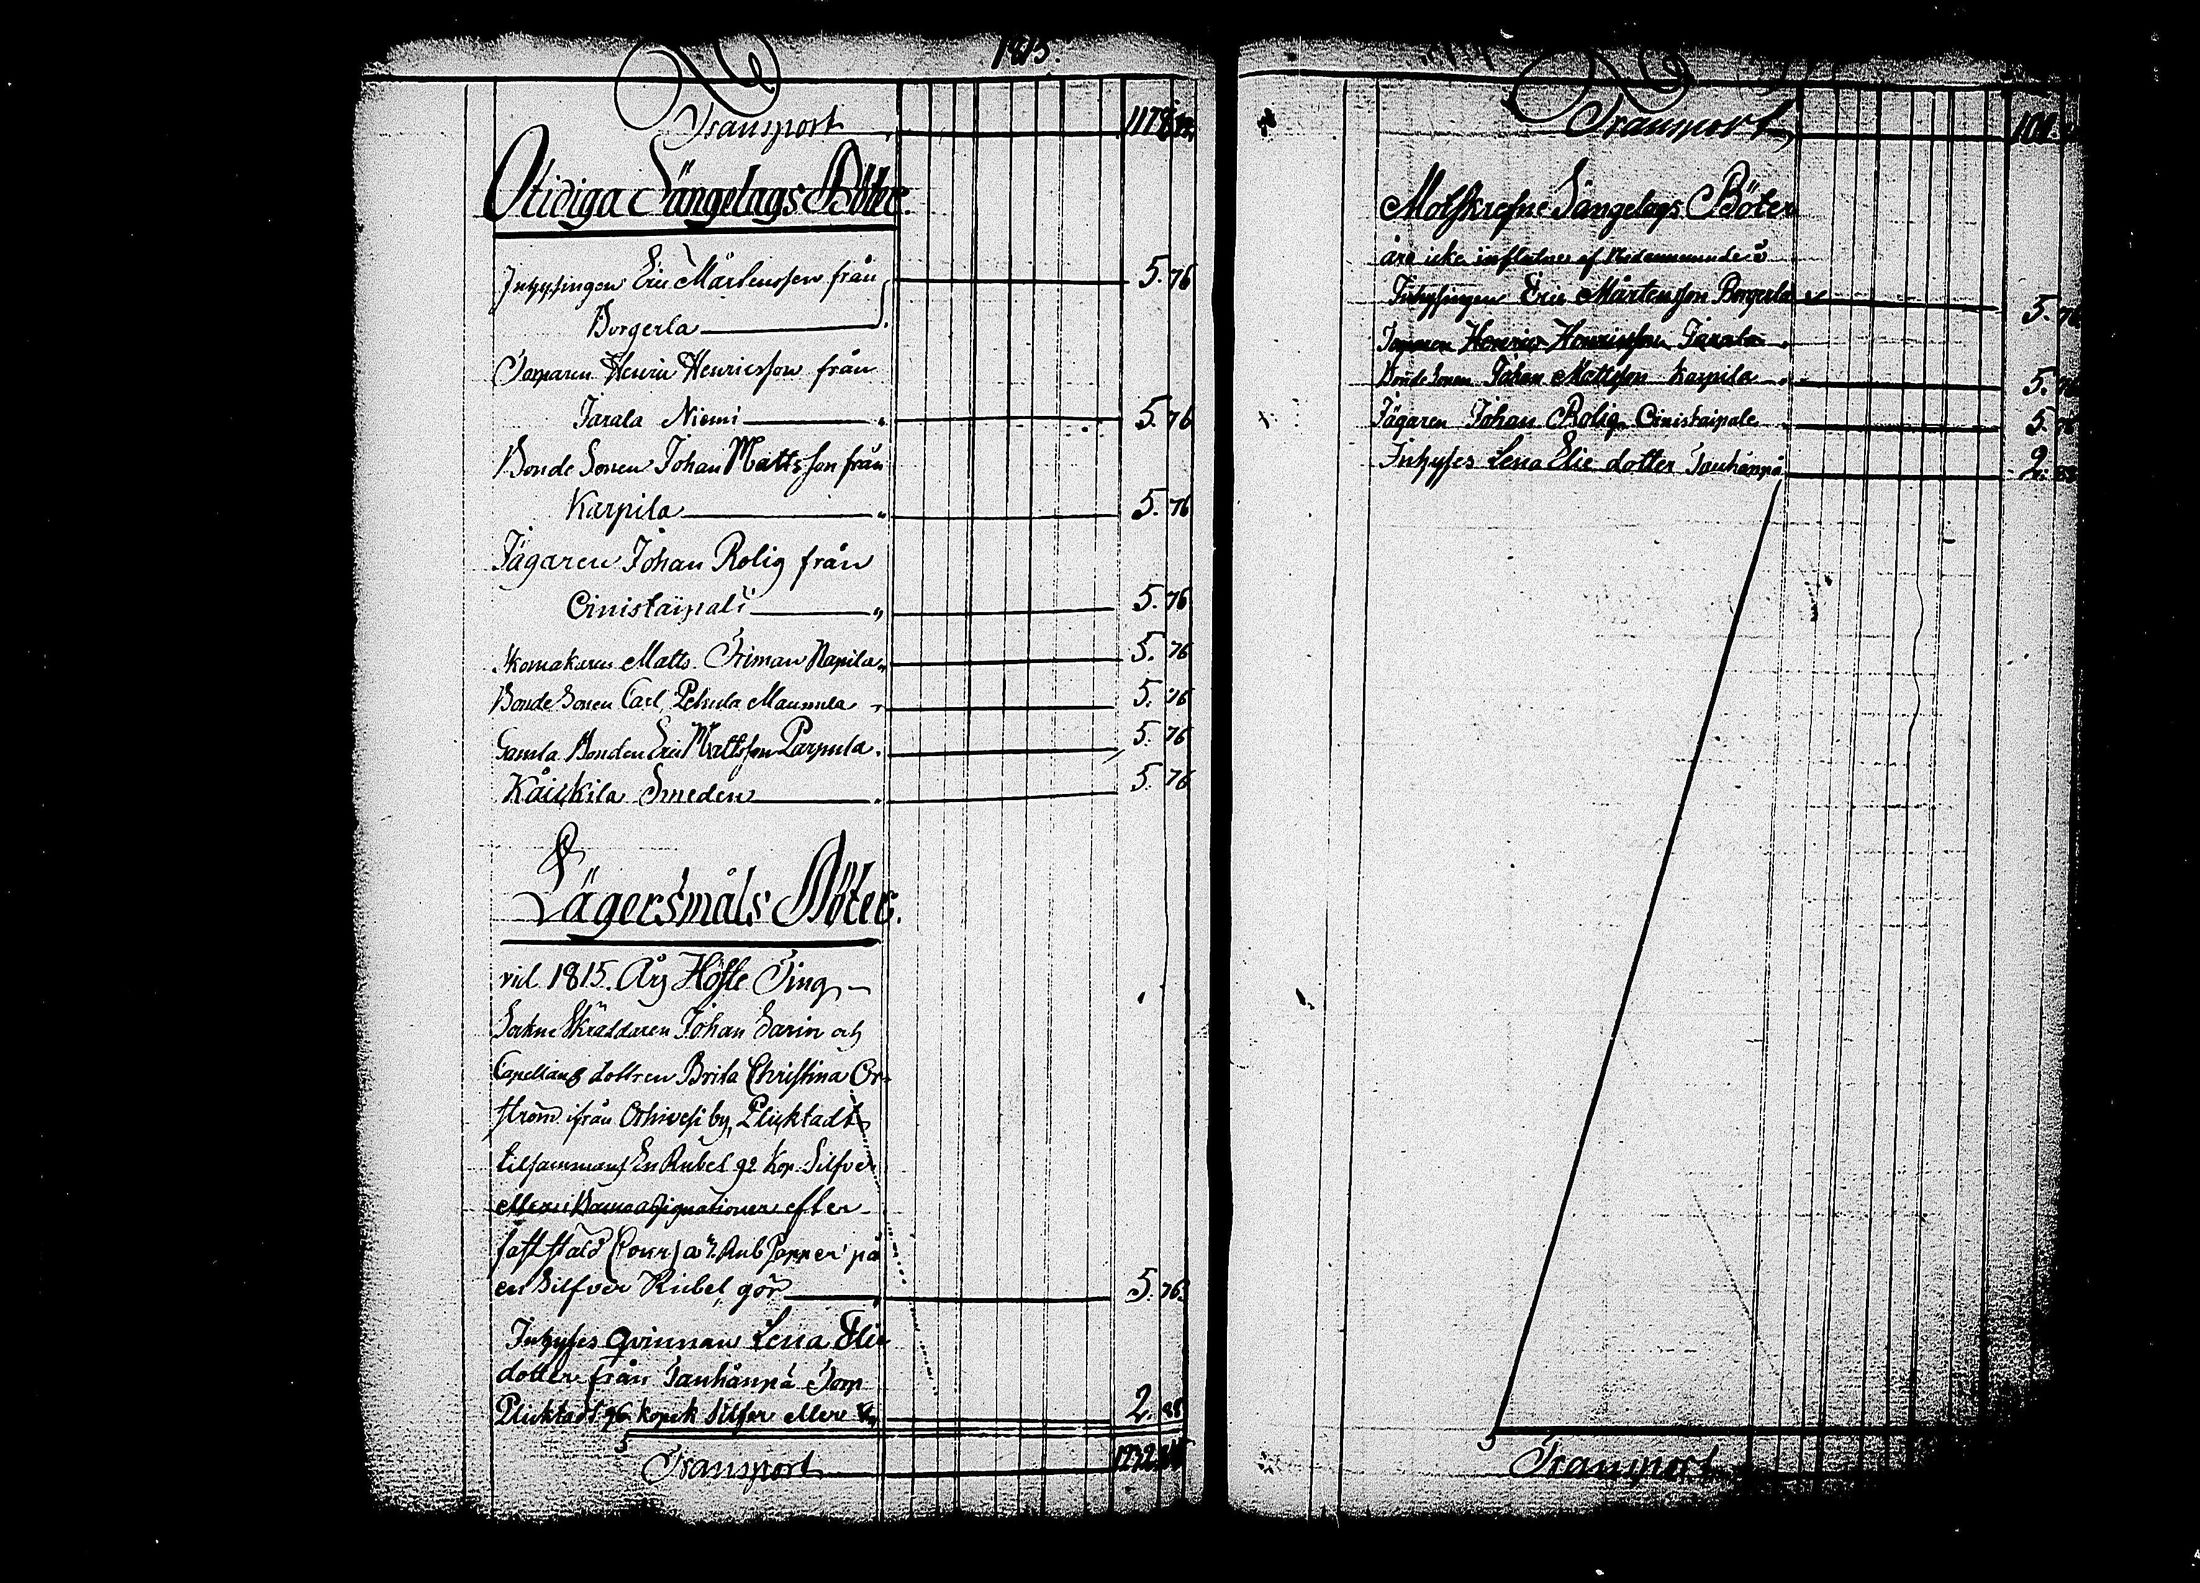 1815.
Transport 1178.
Otidiga Sängelags Böter.
Inhysingen Eric Mårtensson från 5. 76
Borgerla
Torparen Henric Henricsson från
Jarala Niemi 5. 76
Bonde Sonen Johan Mattsson från
Karpila 5. 76
Jägaren Johan Rolig från
Oinistaipale 5. 76
Skomakaren Matts Friman Napila 5. 76
Bonde Sonen Carl Maunula 5. 76
Gamla Bonden Eric Mattsson Parpula 5. 76
Kåukila Smeden 5. 76
Lägersmåls Böter.
vid 1815. Års Höste Ting
Sockne Skräddaren Johan Sarin och
Capellans dottren Brita Christina Or-
ström ifrån Orhivesi by, Pliktadt
tilsammans En Rubel 92 Kop. Silfver
eller i Banco assignationer efter
fastställd Cours a Rub Papper på
en Silfver Rubel, gör 5. 76
Inhyses Qvinnan Lena Elie
dotter från Tauhånpå Torp
Pliktadt 96 Kopek Silfver eller 2. 88
Transport 1232.
Transport
Motskrefne Sängelags Böter
äro icke influtne af Nedannemnde
Inhysingen Eric Mårtensson Borgerla 5. 76
Torparen Henric Henricsson Jarala
Bonde Sonen Johan Mattsson Karpila 5. 76
Jägaren Johan Rolig Oinistaipale 5. 76
Inhyses Lena Elie dotter Tauhånpå 2. 88
Transport